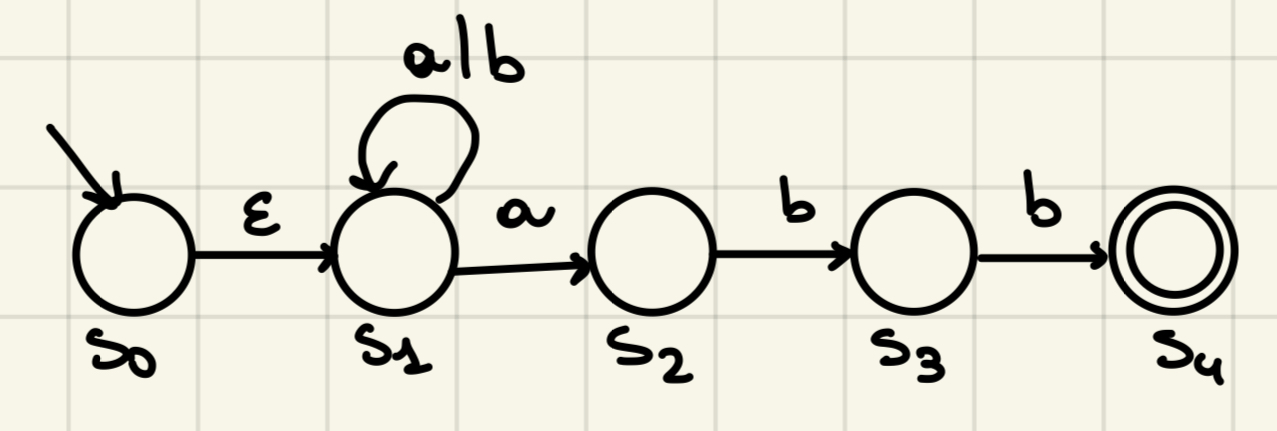 a|b
ε a b b
S0 S1 S2 S3 S4